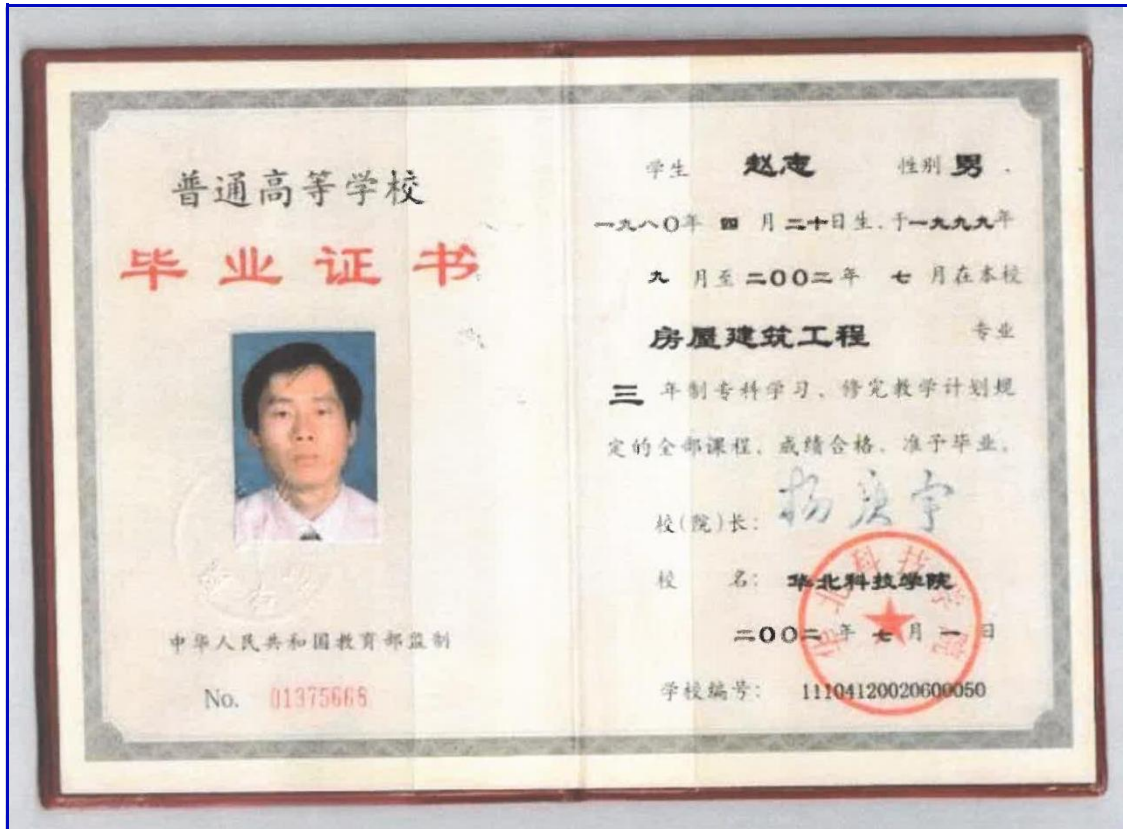 普通高等学校
毕业证书
中华人民共和国教育部监制
No. 01375668
学生 赵志 性别 男
一九八〇年 四 月二十日生,于一九九九年
九 月至二〇〇二年 七 月在本校
房屋建筑工程 专业
三 年制专科学习、修完教学计划规
定的全部课程,成绩合格,准予毕业。
校(院)长: 杨庚宇
校 名: 华北科技学院
华北科技学院
二〇〇二年 七 月 一 日
学校编号: 111041200206000050